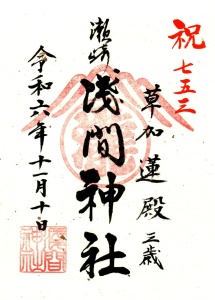 祝
七五三
草加蓮殿 三歳
瀬崎
浅間神社
令和六年十一月十日
浅間神社